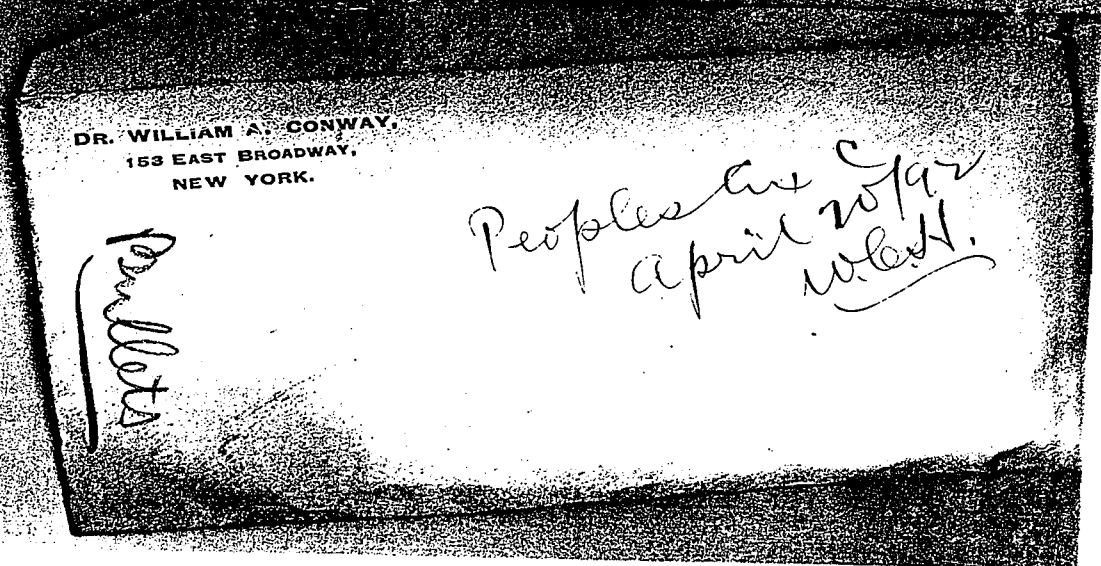 DR. WILLIAM A. CONWAY,
153 EAST BROADWAY,
NEW YORK.
Peoples C
April 20/92
W.C.H.